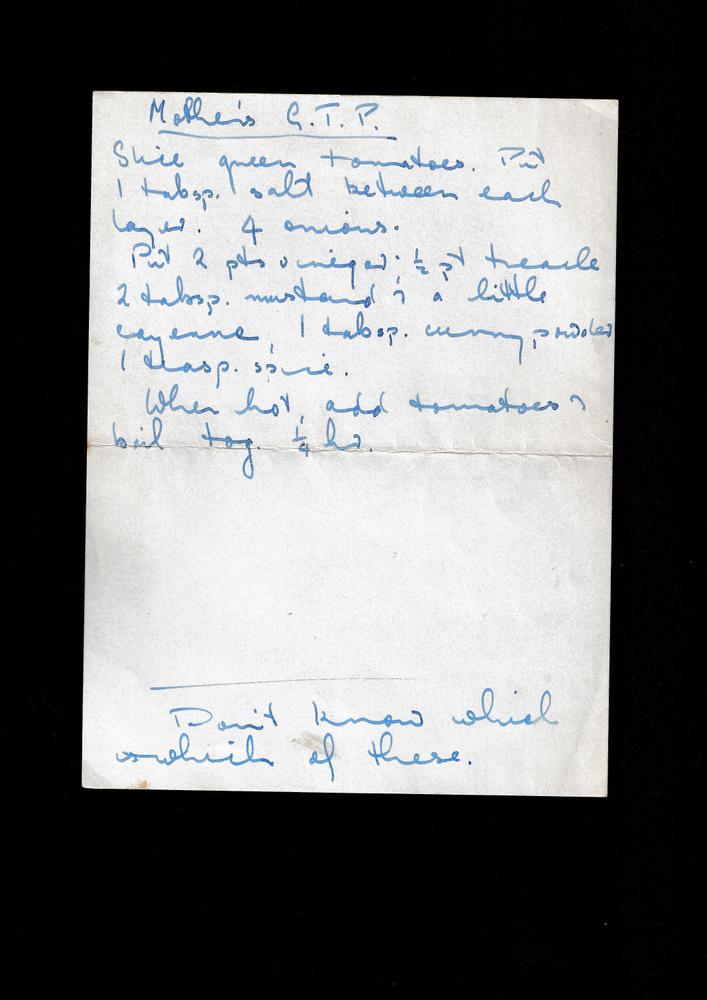 Mother's G.T.P.
Slice green tomatoes. Put
1 tabsp. salt between each
layer. 4 onions.
Put 2 pts vinegar, ½ pt treacle
2 tabsp. mustard & a little
cayenne, 1 tabsp. curry powder
1 teasp. spice.
When hot, add tomatoes &
boil tog. ¼ hr.
Don't know which
is which of these.